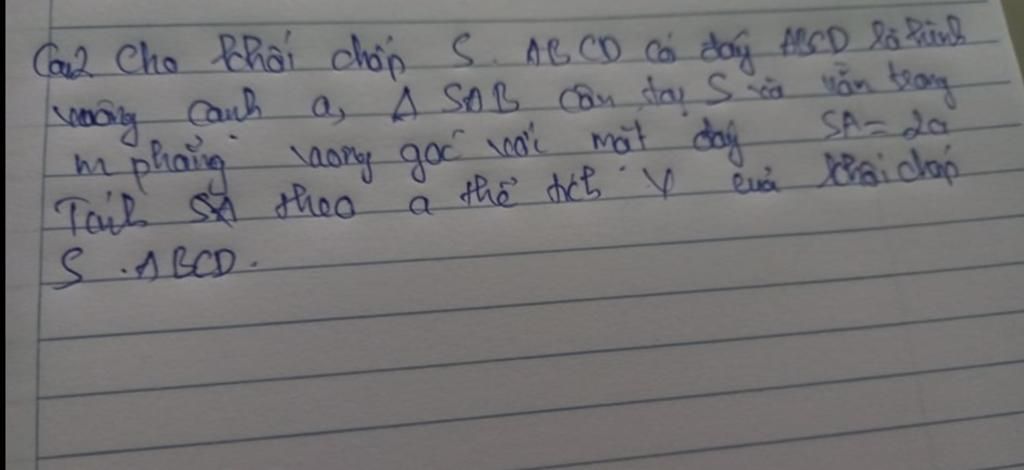 Câu2 Cho khối chóp S. ABCD có đáy ABCD là hình
vuông cạnh a, Δ SAB cân tại S và nằm trong
m phẳng vuông góc với mặt đáy SA = 2a
Tính theo a thể tích V của khối chóp
S. ABCD.